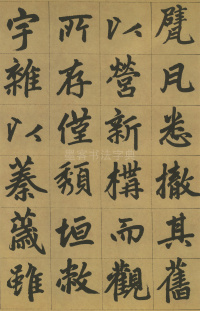 甓凡悉撤其舊
以營新構而觀
所存僅頹垣敝
宇雜以蓁薉雖